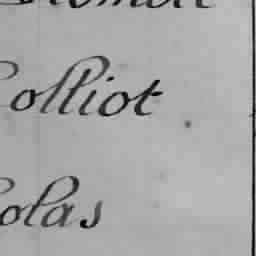 Colliot
Colas